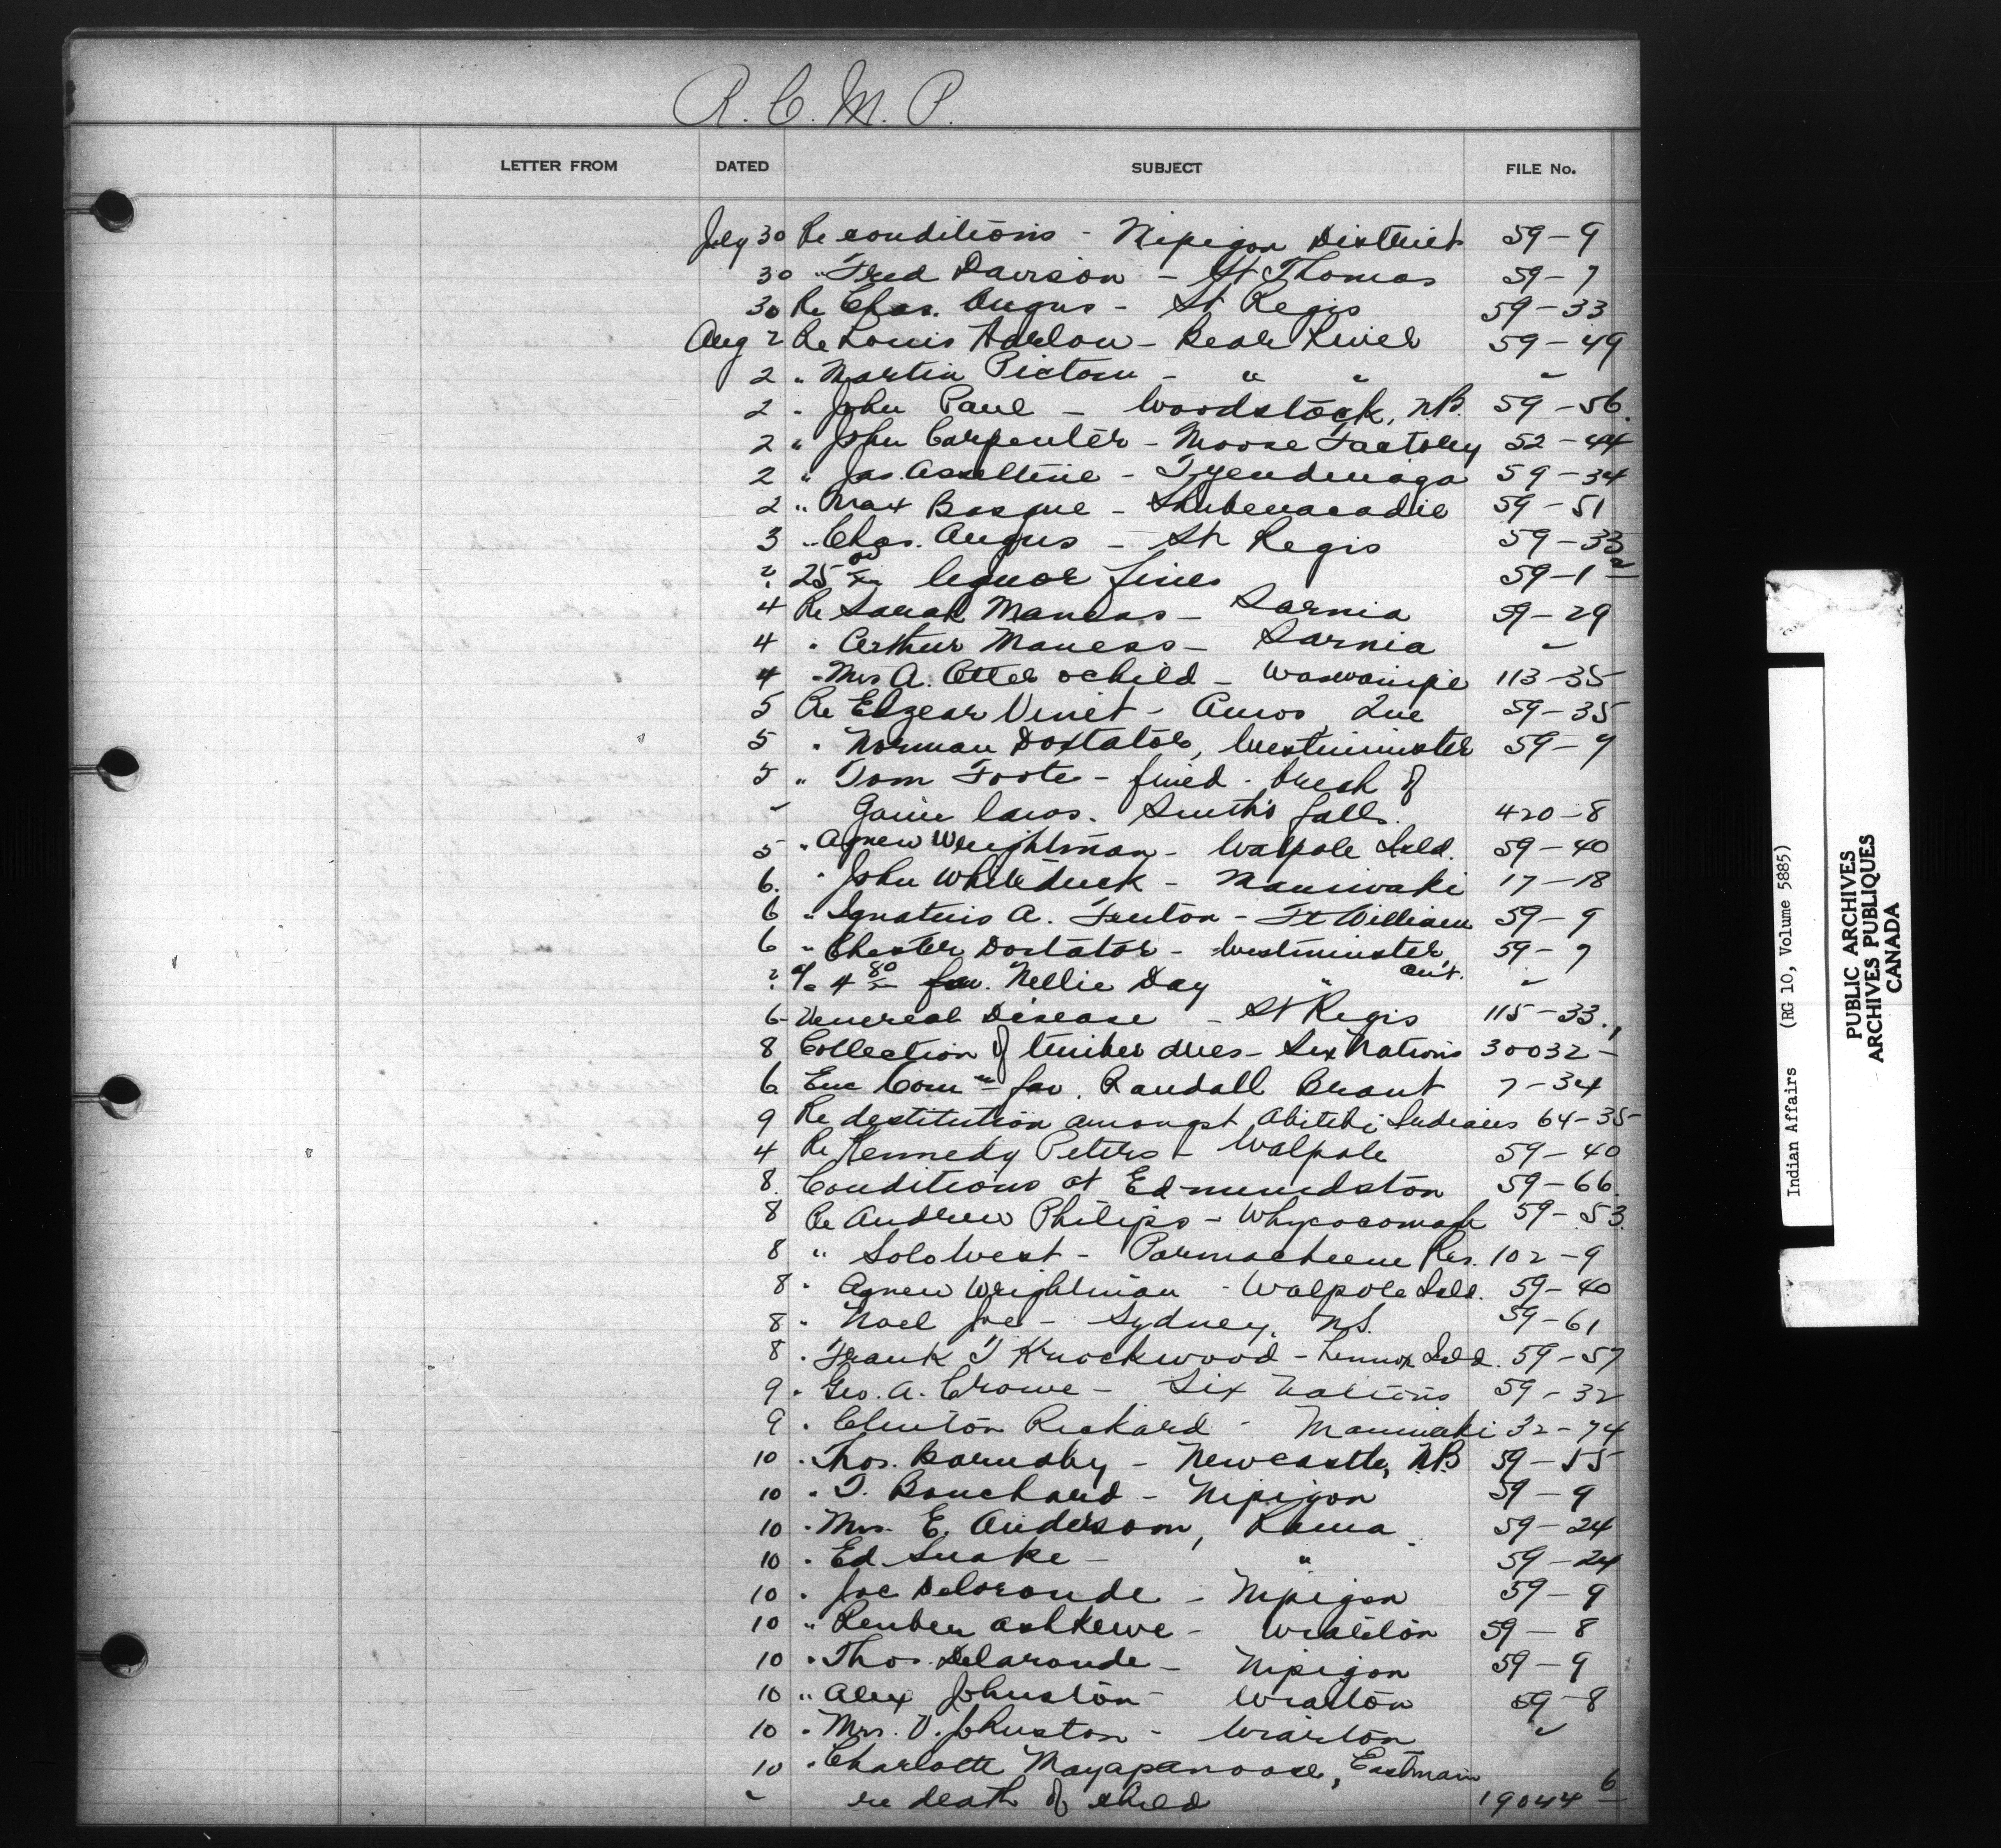 R. C. M. P.
LETTER FROM DATED SUBJECT FILE No.
July 30 Re conditions - Nipigon District 59-9
30 " Fred Davison - St Thomas 59-7
30 Re Chas. Angus - St Regis 59-33
Aug 2 Re Louis Harlow - Bear River 59-49
2 " Martin Pictou - " " "
2 " John Paul - Woodstock, N.B. 59-56.
2 " John Carpenter - Moose Factory 52-44
2 " Jas. Asseltine - Tyendinaga 59-34
2 " Max Basque - Shubenacadie 59-51
3 " Chas. Angus - St Regis 59-33
? 25 00/xx liquor fines 59-1-2
4 Re Sarah Maness - Sarnia 59-29
4 " Arthur Maness - Sarnia "
4 " Mrs A. Otter & child - Waswanipi 113-35
5 Re Elzear Vinet - Amos, Que 59-35
5 " Norman Doxtator, Westminster 59-7
5 " Tom Foote - fined - breach of
" Game laws. Smith's falls. 420-8
5 " Agnew Wrightman - Walpole Isld. 59-40
6. " John Whiteduck - Maniwaki 17-18
6 " Ignatius A. Fenton - Ft William 59-9
6 " Chester Doxtator - Westminster, 59-7
? a/c 4 80/xx fav. Nellie Day " Ont. "
6 - Venereal Disease - St Regis 115-33.
8 Collection of timber dues - Six Nations 30032-1
6 Enc Com n fav. Randall Brant 7-34
9 Re destitution amongst Abitibi Indians 64-35
4 Re Kennedy Peters - Walpole 59-40
8. Conditions at Edmundston 59-66.
8 Re Andrew Philips - Whycocomagh 59-53.
8 " Solo West - Parmacheene Res. 102-9
8 " Agnew Wrightman - Walpole Isld. 59-40
8 " Noel Joe - Sydney, N.S. 59-61
8 " Frank T Knockwood - Lennox Isld. 59-57
9 " Geo. A. Crowe - Six Nations 59-32
9 " Clinton Rickard - Maniwaki 32-74
10 " Thos. Barnaby - Newcastle, N.B. 59-55
10 " T. Bouchard - Nipigon 59-9
10 " Mrs. E. Anderson, Rama 59-24
10 " Ed Snake - " 59-24
10 " Joe Delaronde - Nipigon 59-9
10 " Reuben Ashkewe - Wiarton 59-8
10 " Thos. Delaronde - Nipigon 59-9
10 " Alex Johnston - Wiarton 59-8
10 " Mrs. V. Johnston - Wiarton "
10 " Charlotte Mayapanoose, Eastmain
" re death of child 19044-6
Indian Affairs (RG 10, Volume 5885)
PUBLIC ARCHIVES
ARCHIVES PUBLIQUES
CANADA